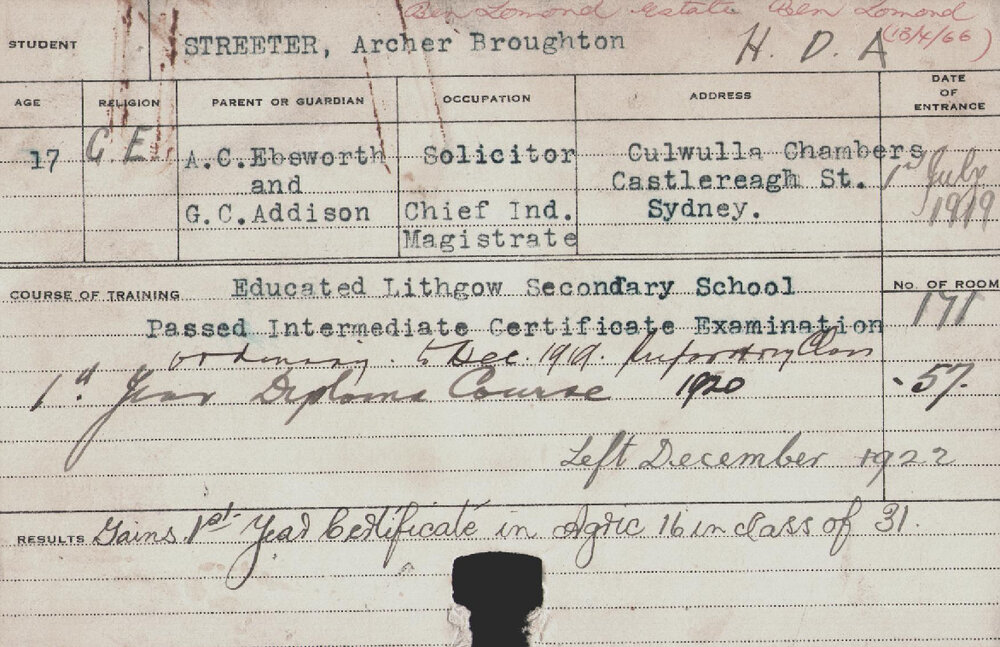 Ben Lomond Estate Ben Lomond
(18/4/66)
STUDENT STREETER, Archer Broughton H. D. A
AGE RELIGION PARENT OR GUARDIAN OCCUPATION ADDRESS DATE OF ENTRANCE
17 C. E. A.C.Ebsworth Solicitor Culwulla Chambers 1st July
and Castlereagh St. 1919
G.C.Addison Chief Ind. Sydney.
Magistrate
COURSE OF TRAINING Educated Lithgow Secondary School No. OF ROOM
Passed Intermediate Certificate Examination 171
ordinary. to Dec. 1919. Class
1st Year Diploma Course 1920 57.
Left December 1922
RESULTS Gains 1st Year Certificate in Agric 16 in class of 31.